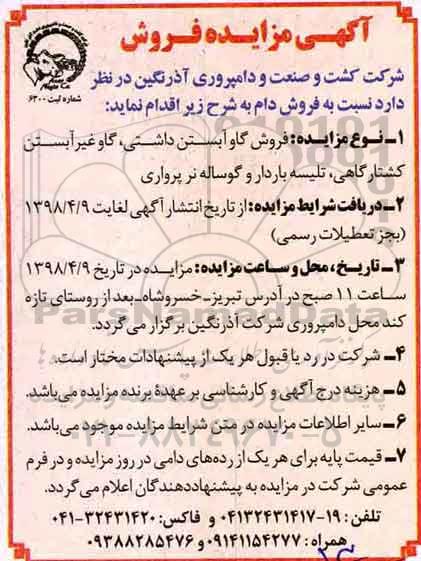 آگهی مزایده فروش
شماره ثبت ۶۳۰۰
شرکت کشت و صنعت و دامپروری آذرنگین در نظر
دارد نسبت به فروش دام به شرح زیر اقدام نماید:
۱ـ نوع مزایده: فروش گاو آبستن داشتی، گاو غیر آبستن
کشتارگاهی، تلیسه باردار و گوساله نر پرواری
۲ـ دریافت شرایط مزایده: از تاریخ انتشار آگهی لغایت ۱۳۹۸/۴/۹
(بجز تعطیلات رسمی)
۳ـ تاریخ، محل و ساعت مزایده: مزایده در تاریخ ۱۳۹۸/۴/۹
ساعت ۱۱ صبح در آدرس تبریزـ خسروشاه ـ بعد از روستای تازه
کند محل دامپروری شرکت آذرنگین برگزار می گردد.
۴ـ شرکت در رد یا قبول هر یک از پیشنهادات مختار است.
۵ـ هزینه درج آگهی و کارشناسی بر عهدهٔ برنده مزایده می‌باشد.
۶ـ سایر اطلاعات مزایده در متن شرایط مزایده موجود می‌باشد.
۷ـ قیمت پایه برای هر یک از رده‌های دامی در روز مزایده و در فرم
عمومی شرکت در مزایده به پیشنهاددهندگان اعلام می گردد.
تلفن: ۱۹-۰۴۱۳۲۴۳۱۴۱۷ و فاکس: ۳۲۴۳۱۴۲۰-۰۴۱
همراه: ۰۹۱۴۱۱۵۴۲۷۷ و ۰۹۳۸۸۲۸۵۴۷۶
ParsNamadData
۰۲۱-۸۸۳۴۹۶۷۰-۵